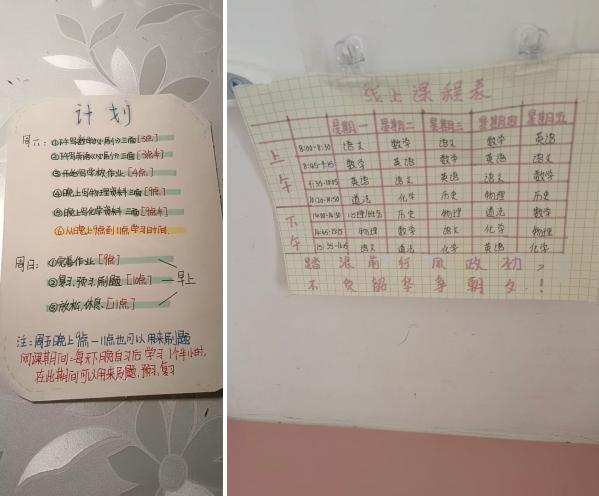 计划
周六:①下午写数学以及小分三面[3点]
②下午写英语以及小分三面[3点半]
③开始写学校作业[4点]
④晚上写物理资料三面[9点]
⑤晚上写化学资料三面[9点半]
⑥从晚上9点到11点学习日时间.
周日:①完善作业[9点]
②复习.预习.刷题[10点] 早上
③放松.休息.[11点]
注:周五晚上9点—11点也可以用来刷题
网课期间=每天下晚自习后学习1个半小时,
在此期间可以用来刷题,预习,复习
线上课程表
星期一 星期二 星期三 星期四 星期五
上午
8:00-8:30 语文 数学 语文 数学 英语
8:45-9:15 数学 英语 数学 英语 语文
英语 语文 英语 语文 数学
10:20-10:50 道法 化学 历史 物理 历史
下午
14:00-14:30 心理/班会 历史 物理 道法 数学
物理 数学 语文 化学 物理
语文 道法 化学 英语 化学
踏浪前行风政初,
不负韶华争朝夕!